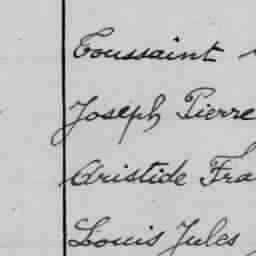 Toussaint
Joseph Pierre
Aristide Fra
Louis Jules